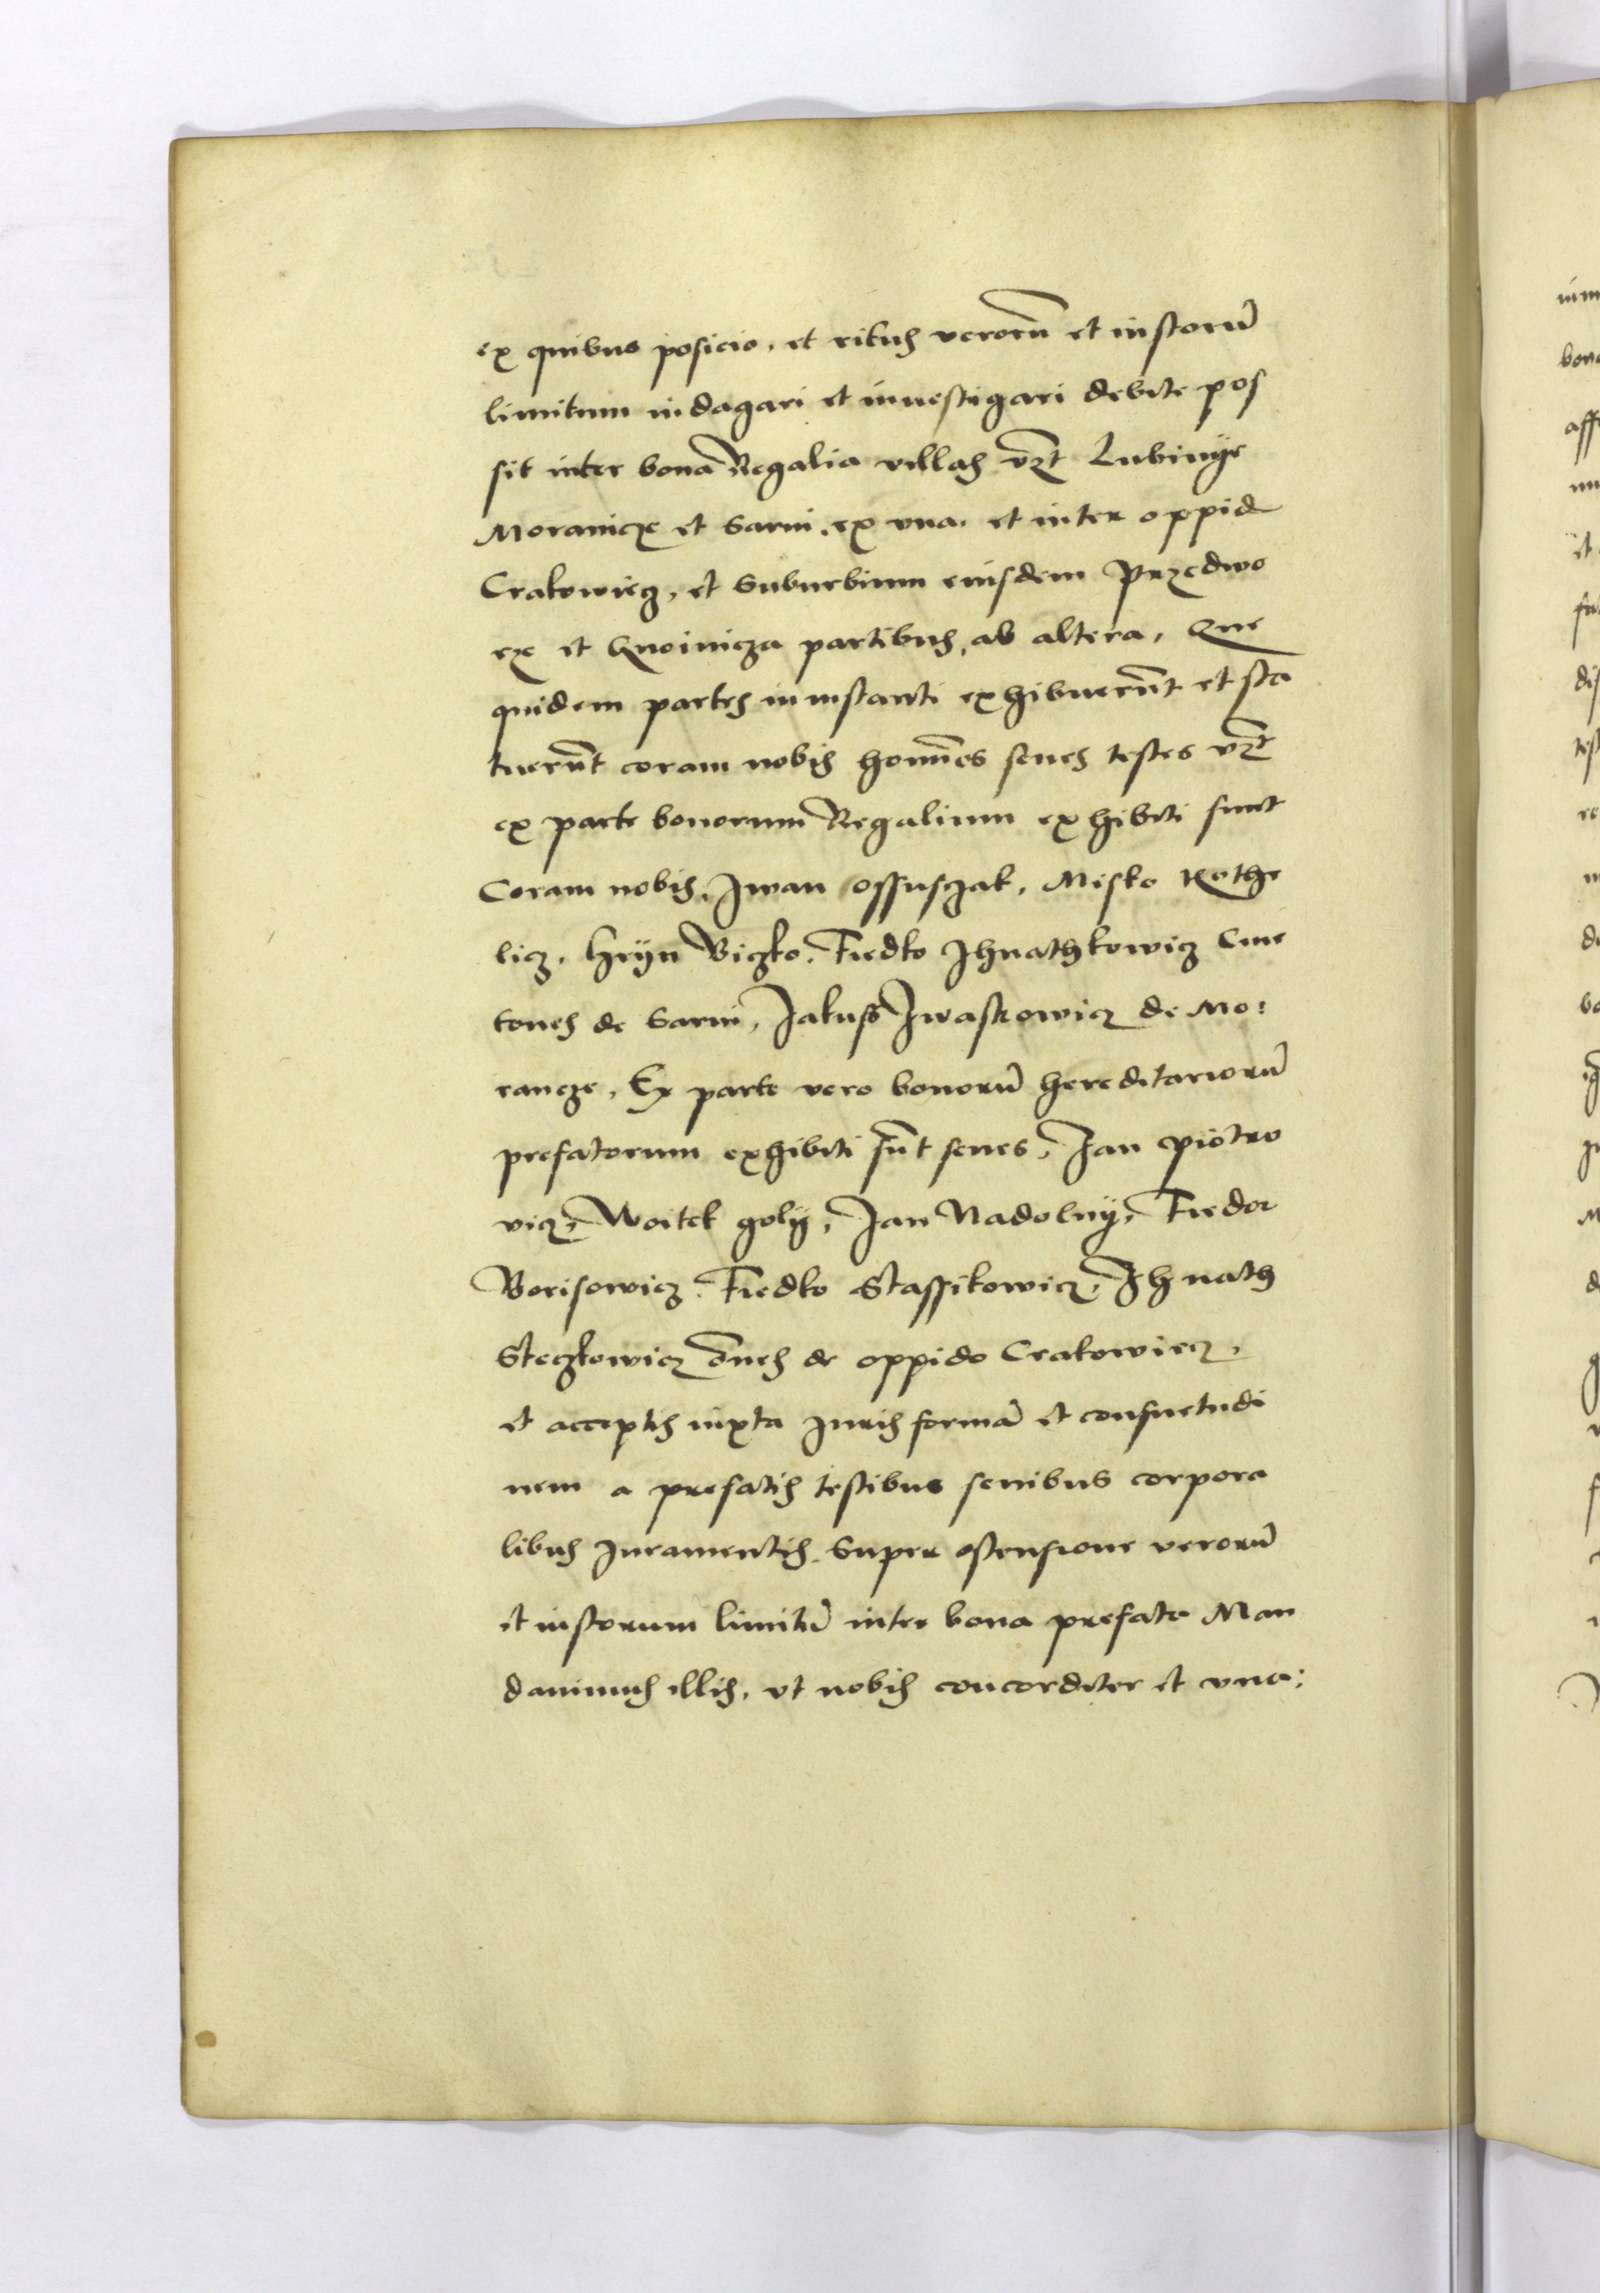 ex quibus posicio, et ritus verorū et iustorū
limitum indagari et inuestigari debite pos
sit inter bona Regalia villas vz̄t Lubinÿe
Moranicze et Sarni, ex vna, et inter oppid
Crakowiecz, et Suburbium eiusdem Przedwo
rze et Gnoinicza partibus, ab altera, Que
quidem partes in instanti exhibuerūt et sta
tuerūt coram nobis homīes senes testes vz̄t
ex parte bonorum Regalium exhibiti sunt
Coram nobis, Iwan Ossusczak, Misko Kothe
licz, Hrÿn Biczko, Fiedko Ihnathkowicz Cme
tones de Sarni, Jakuss Iwaskowicz de Mo:
rancze, Ex parte vero bonorū hereditariorū
prefatorum exhibiti sūt senes, Jan Piotro
vicz, Woitek golÿ, Jan Nadolnÿ, Fiedor
Borisowicz, Fiedko Stassikowicz, Ihnath
Steczkowicz ōnes de oppido Crakowiecz,
et acceptis iuxta Iuris formā et consuetudi
nem a prefatis testibus senibus corpora
libus Iuramentis Super ostensione verorū
et iustorum limitū inter bona prefata Man
dauimus illis, vt nobis concorditer et vna: